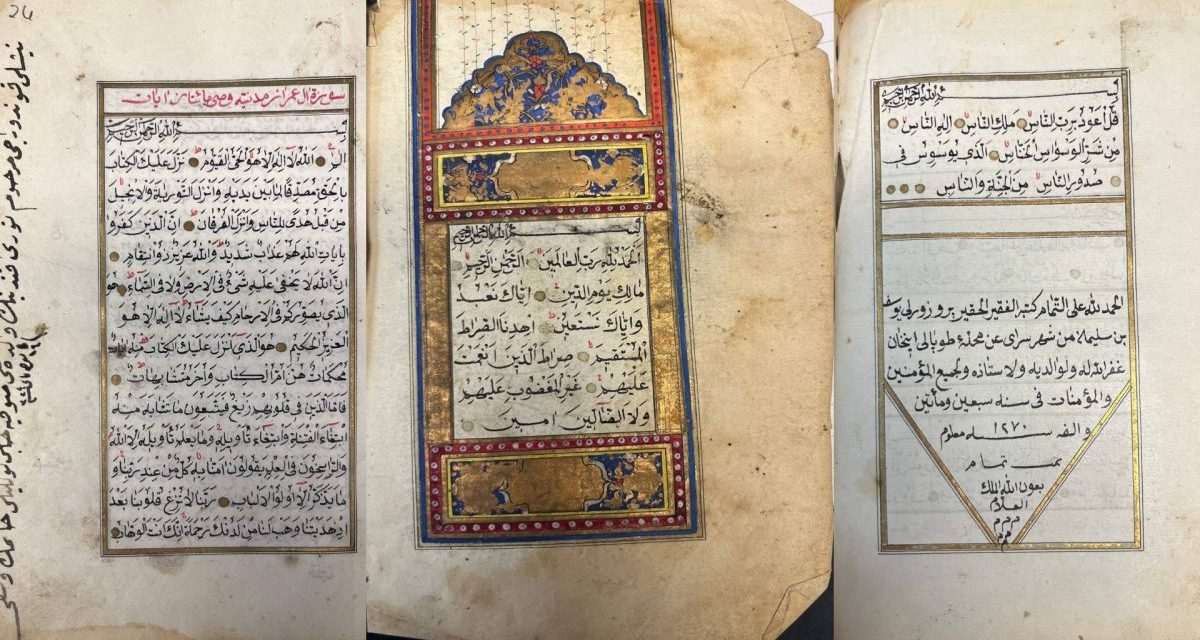 24
سورة ال عمران مدنية وهي مايتان ايات
بسم الله الرحمن الرحيم
الم الله لا اله الا هو الحي القيوم نزل عليك الكتاب
بالحق مصدقا لما بين يديه وانزل التورية والانجيل
من قبل هدى للناس وانزل الفرقان ان الذين كفروا
بايات الله لهم عذاب شديد والله عزيز ذو انتقام
ان الله لا يخفى عليه شئ في الارض ولا في السماء هو
الذي يصوركم في الارحام كيف يشاء لا اله الا هو
العزيز الحكيم هو الذي انزل عليك الكتاب منه ايات
محكمات هن ام الكتاب واخر متشابهات
فاما الذين في قلوبهم زيغ فيتبعون ما تشابه منه
ابتغاء الفتنة وابتغاء تاويله وما يعلم تاويله الا الله
والراسخون في العلم يقولون امنا به كل من عند ربنا و
ما يذكر الا اولو الالباب ربنا لا تزغ قلوبنا بعد
اذ هديتنا وهب لنا من لدنك رحمة انك انت الوهاب
مرحوم نوري
بسم الله الرحمن الرحيم
الحمد لله رب العالمين الرحمن الرحيم
مالك يوم الدين اياك نعبد
واياك نستعين اهدنا الصراط
المستقيم صراط الذين انعمت
عليهم غير المغضوب عليهم
ولا الضالين امين
بسم الله الرحمن الرحيم
قل اعوذ برب الناس ملك الناس اله الناس
من شر الوسواس الخناس الذي يوسوس في
صدور الناس من الجنة والناس
الحمد لله على التمام كتبه الفقير الحقير يوسف
بن سليمان من شهر سراى عن محله طوبالى اينخان
غفر الله له ولوالديه ولاستاذه ولجميع المؤمنين
والمؤمنات في سنه سبعين ومأتين
والف سنه ١٢٧٠ معلوم
تمت تمام
بعون الله الملك
العلام
م م م
م م